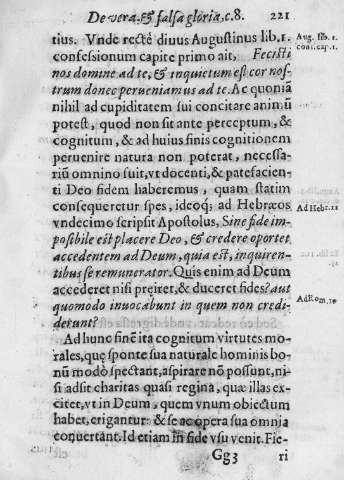 De vera & falsa gloria, c.8. 221
tius. Vnde recte diuus Augustinus lib.1. Aug. lib. 1.
confessionum capite primo ait, Fecisti conf. cap. 1.
nos domine ad te, & inquietum est cor nos-
trum donec perueniamus ad te. Ac quoniã
nihil ad cupiditatem sui concitare animũ
potest, quod non sit ante perceptum, &
cognitum, & ad huius finis cognitionem
peruenire natura non poterat, necessa-
riũ omnino fuit, vt docenti, & patefacien-
ti Deo fidem haberemus, quam statim
consequeretur spes, ideoq; ad Hebræos
vndecimo scripsit Apostolus, Sine fide im- Ad Hebr. 11
posibile est placere Deo, & credere oportet
accedentem ad Deum, quia est, inquiren-
tibus se remunerator. Quis enim ad Deum
accederet nisi preiret, & duceret fides? aut
quomodo inuocabunt in quem non credi- Ad Rom. 10
derunt?
Ad hunc finẽ ita cognitum virtutes mo-
rales, quę sponte sua naturale hominis bo-
nũ modò spectant, aspirare nõ possunt, ni-
si adsit charitas quasi regina, quæ illas ex-
citet, vt in Deum, quem vnum obiectum
habet, erigantur: & se ac opera sua omnia
cõuertant. Id etiam in fide vsu venit. Fie-
Gg3 ri